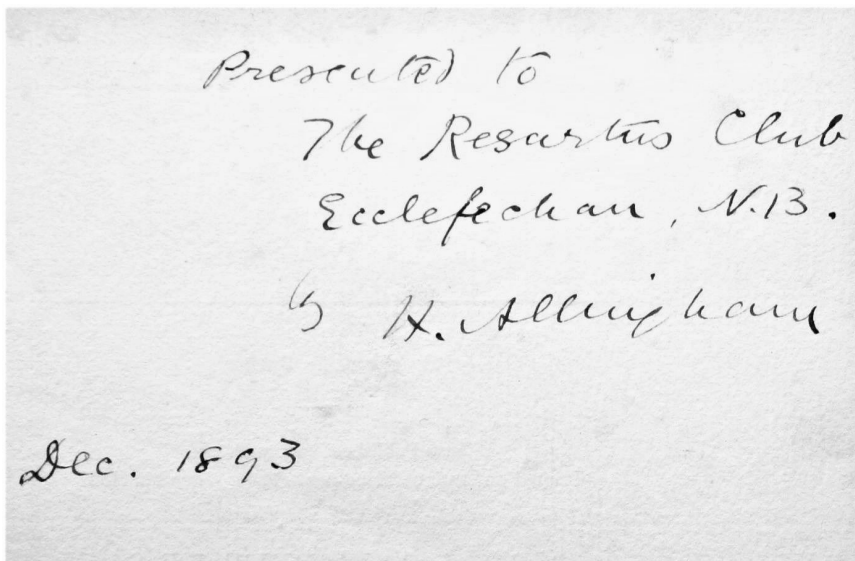 Presented to
The Resartus Club
Ecclefechan, N.B.
by H. Allingham
Dec. 1893